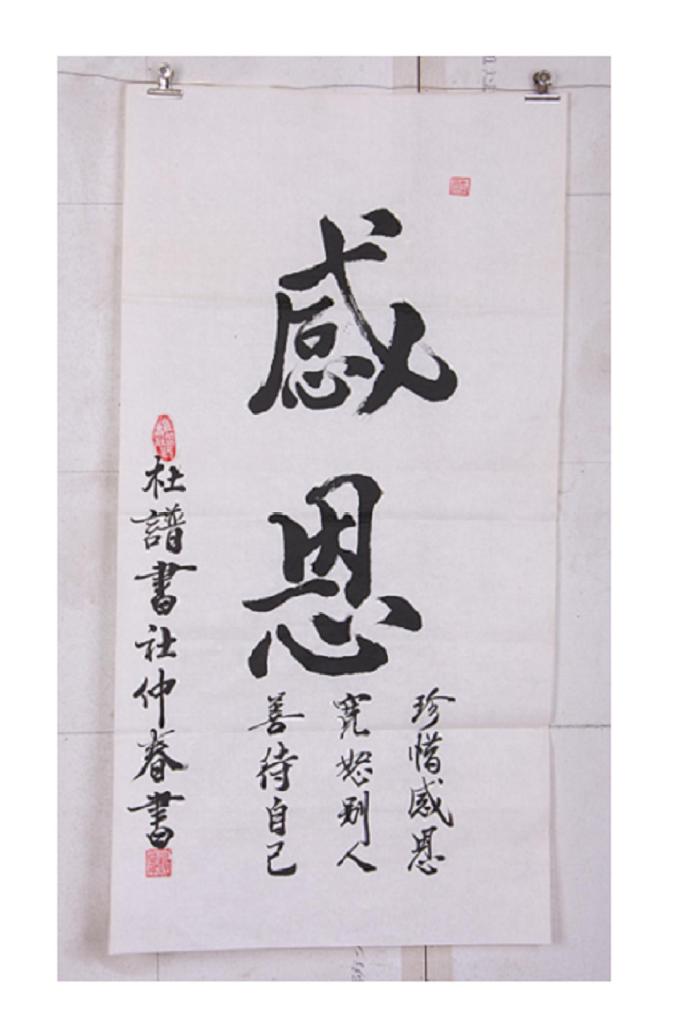 感恩
珍惜感恩
寬恕别人
善待自己
杜譜書社仲春書